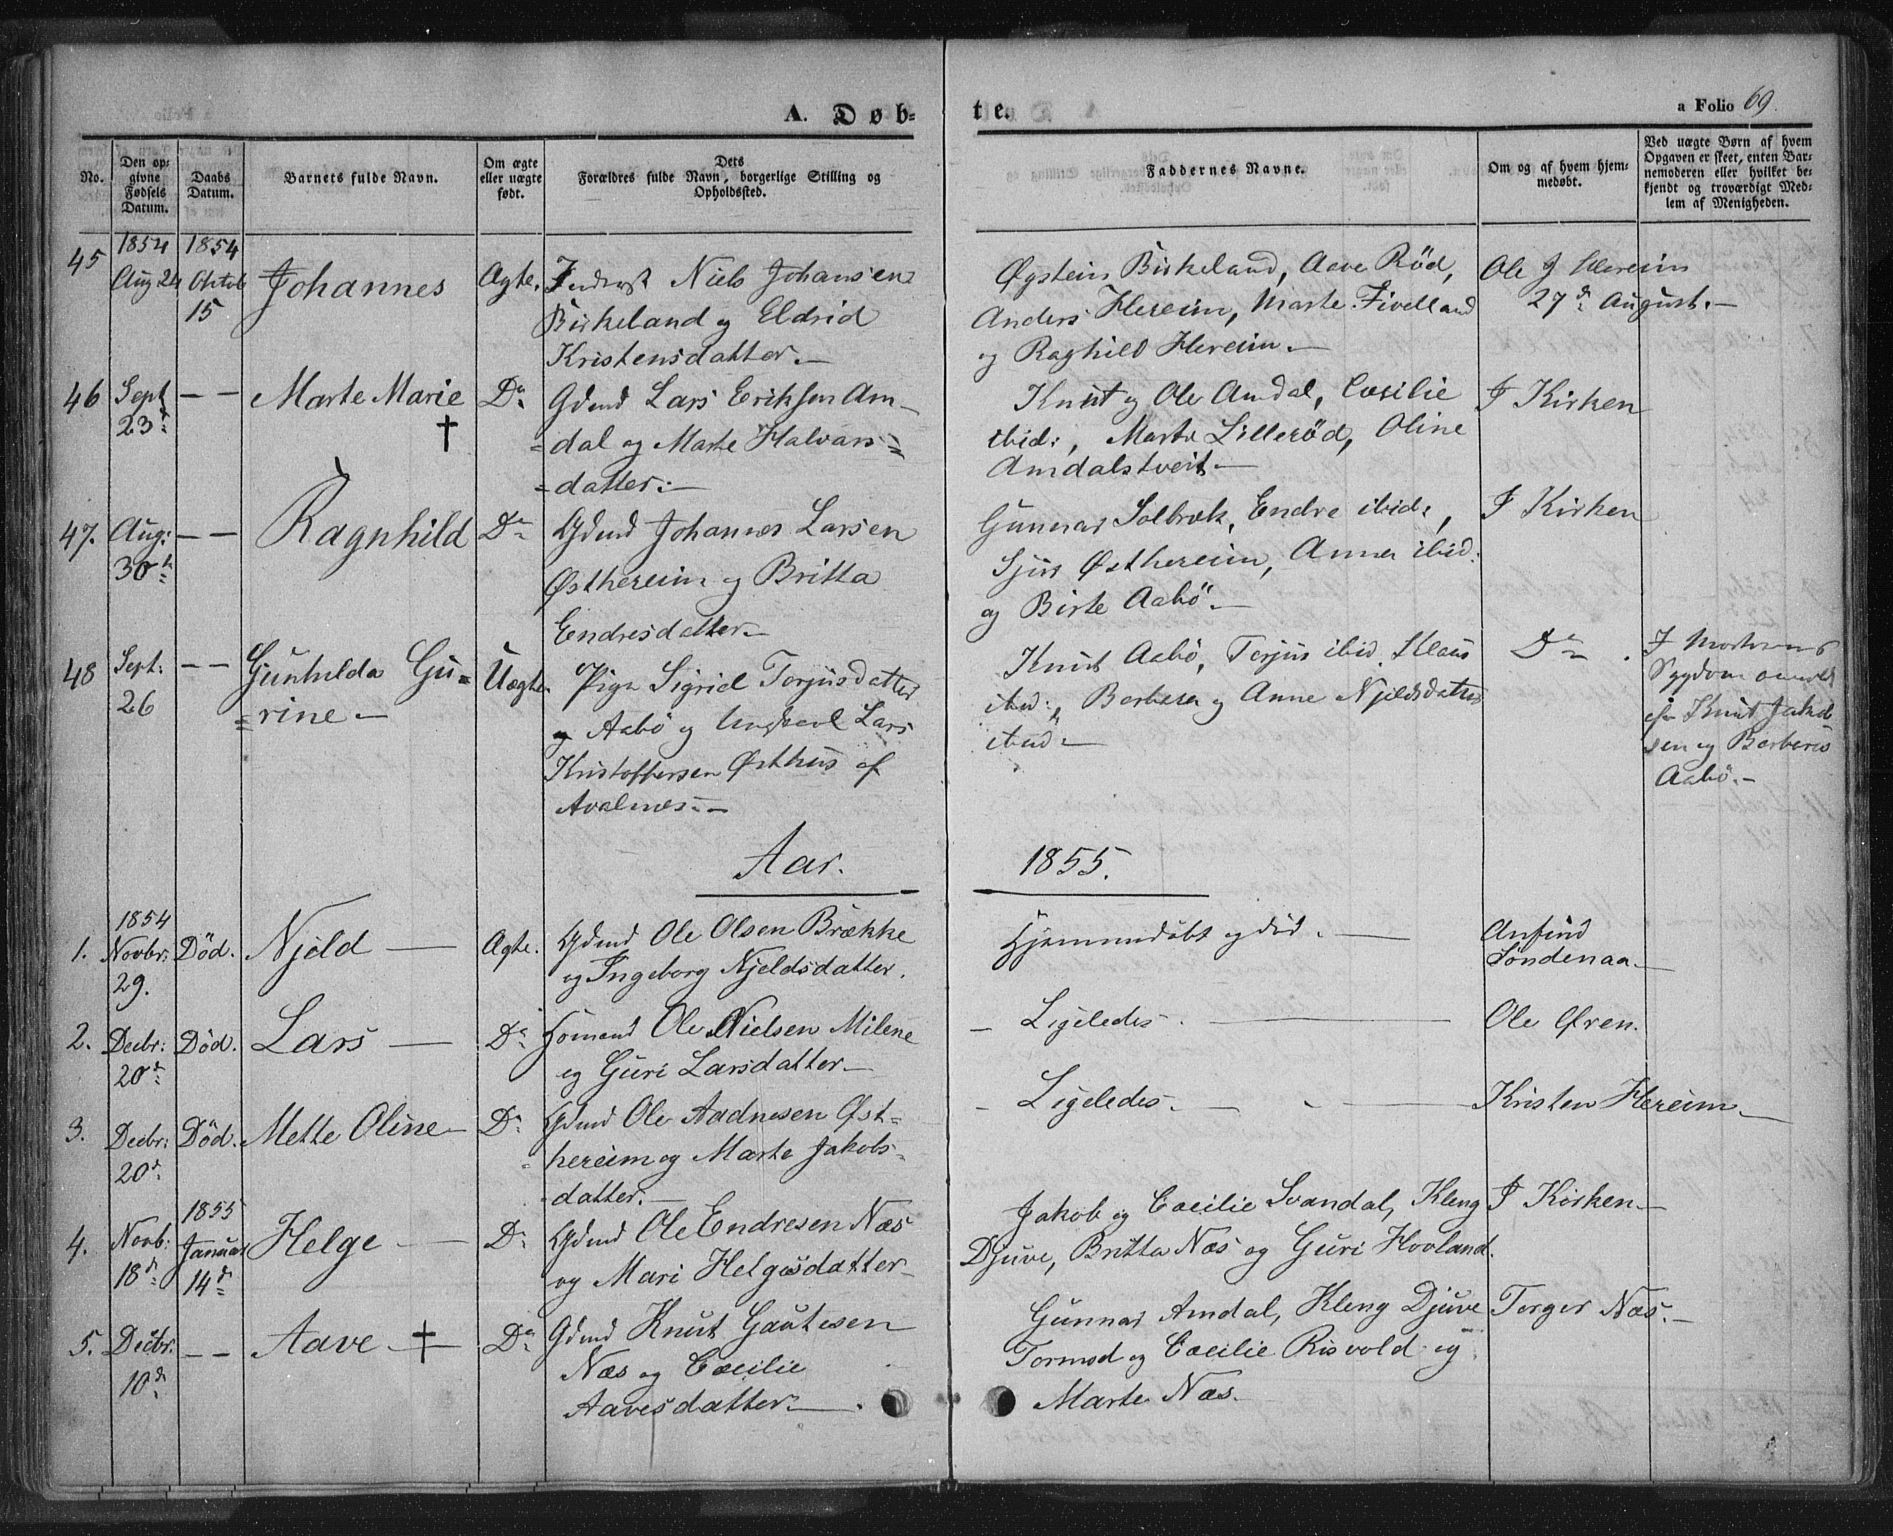 A. Døb=
te.
a Folio 69.
No.
Den op=
givne
Fødsels
Datum.
Daabs
Datum.
Barnets fulde Navn.
Om ægte
eller uægte
født.
Dets
Forældres fulde Navn, borgerlige Stilling og
Opholdssted.
Faddernes Navne.
Om og af hvem hjem=
medøbt.
Ved uægte Børn af hvem
Opgaven er skeet, enten Bar=
nemoderen eller hvilket be=
kjendt og troværdigt Med=
lem af Menigheden.
45
1854
Aug 24
1854
Oktob
15
Johannes
Ægte.
Inderst Niels Johansen
Birkeland og Eldrid
Kristensdatter.
Øystein Birkeland, Aave Röd,
Anders Hereim, Marte Fivelland
og Raghild Hereim.
Ole J Hereim
27d August.
46
Sept
23d
— —
Marte Marie
†
Do
Gdmd Lars Eriksen Am
=dal og Marte Halvars=
=datter.
Knut og Ole Amdal, Cæsilie
ibid:, Marte Lillerød, Oline
Amdalstveit
I Kirken
47.
Aug:
30te
— —
Ragnhild
Do
Gdmd Johannes Larsen
Østhereim og Britta
Endresdatter
Gunnar Solbræk, Endre ibid:,
Sjur Østhereim, Anna ibid:
og Birte Aabö.
I Kirken
48
Sept:
26
— —
Gunhilda Gu=
=rine
Uægte.
Pige Sigrid Terjusdatter
Aabö og Ungkarl Lars
Kristoffersen Østhus af
Avalnes.
Knut Aabö, Terjus ibid. Klaus
ibid:, Berbera og Anne Njeldsdatter
ibid
Do
I Moderens
Sygdom anmeldt
af Knut Jakob
sen og Berbera
Aabö.
Aar.
1855.
1.
1854
Novbr:
29.
Död.
Njeld
Ægte.
Gdmd Ole Olsen Brække
og Ingeborg Njeldsdatter.
Hjemmedøbt og död.
Anfind
Søndenaa
2.
Decbr:
20d
Död.
Lars
Do
Husmand Ole Nielsen Milene
og Guri Larsdatter
Ligeledes.
Ole Øren.
3.
Decbr:
20d
Död.
Mette Oline
Do
Gdmd Ole Aadnesen Øst=
hereim og Marte Jakobs
datter.
Ligeledes.
Kristen Hereim
4.
Novb:
18d
1855
Januar
14d
Helge
Do
Gdmd Ole Endresen Næs
og Mari Helgesdatter
Jakob og Cæcilie Svandal, Kleng
Djuve, Britta Næs og Guri Hovland.
I Kirken
5.
Decbr.
10d
— —
Aave †
Do
Gdmd Knut Gautesen
Næs og Cæcilie
Aavesdatter
Gunnar Amdal, Kleng Djuve
Tormod og Cæcilie Risvold og
Marte Næs.
Torger Næs.